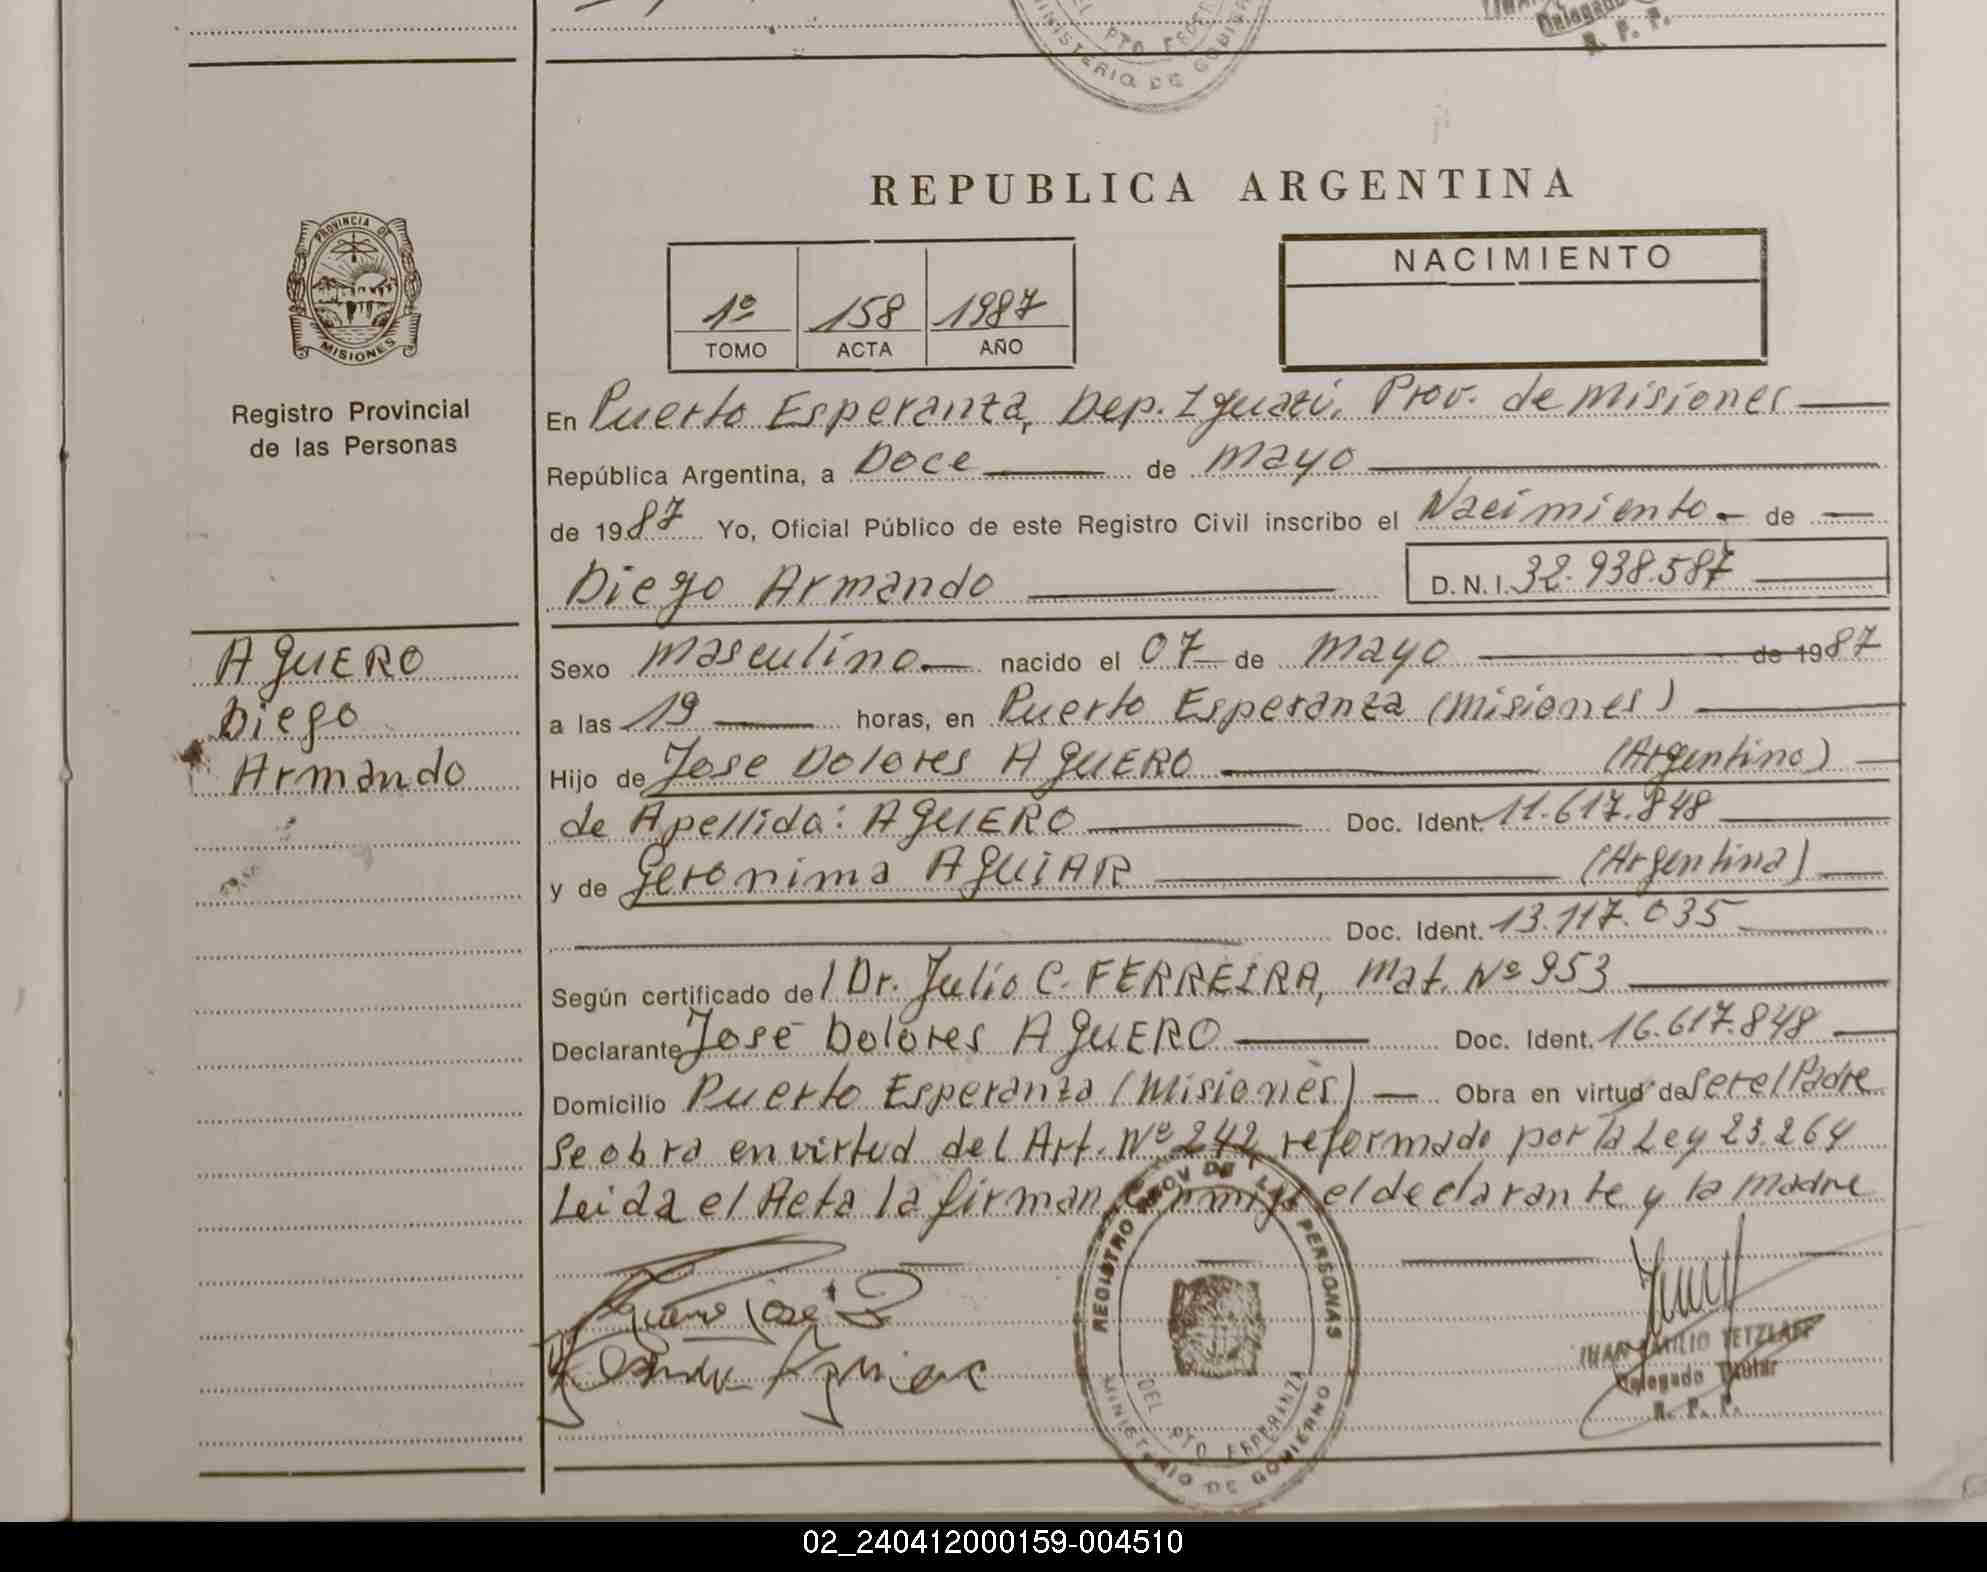 DEL PTO
MINISTERIO DE GOBIER
Delegado
R. P. P.
REPUBLICA ARGENTINA
PROVINCIA DE
MISIONES
Registro Provincial
de las Personas
1º 158 1987
TOMO ACTA AÑO
NACIMIENTO
En Puerto Esperanza, Dep. Iguazú, Prov. de Misiones
República Argentina, a Doce de Mayo
de 1987 Yo, Oficial Público de este Registro Civil inscribo el Nacimiento.- de
Diego Armando D.N.I. 32.938.587
AGUERO
Diego
Armando
Sexo Masculino nacido el 07 de Mayo de 1987
a las 19 horas, en Puerto Esperanza (Misiones)
Hijo de Jose Dolores AGUERO (Argentino)
de Apellido: AGUERO Doc. Ident. 11.617.848
y de Geronima AGUIAR (Argentina)
Doc. Ident. 13.117.035
Según certificado del Dr. Julio C. FERREIRA, Mat. Nº 953
Declarante José Dolores AGUERO Doc. Ident. 16.617.848
Domicilio Puerto Esperanza (Misiones) Obra en virtud de ser el Padre
Se obra en virtud del Art. Nº 242, reformado por la Ley 23.264
Leida el Acta la firman conmigo el declarante y la madre
Aguero José D
Aguiar
REGISTRO PROV DE LAS PERSONAS
DEL PTO ESPERANZA
MINISTERIO DE GOBIERNO
JUAN EMILIO TETZLAFF
Delegado Titular
R. P. P.
02_240412000159-004510